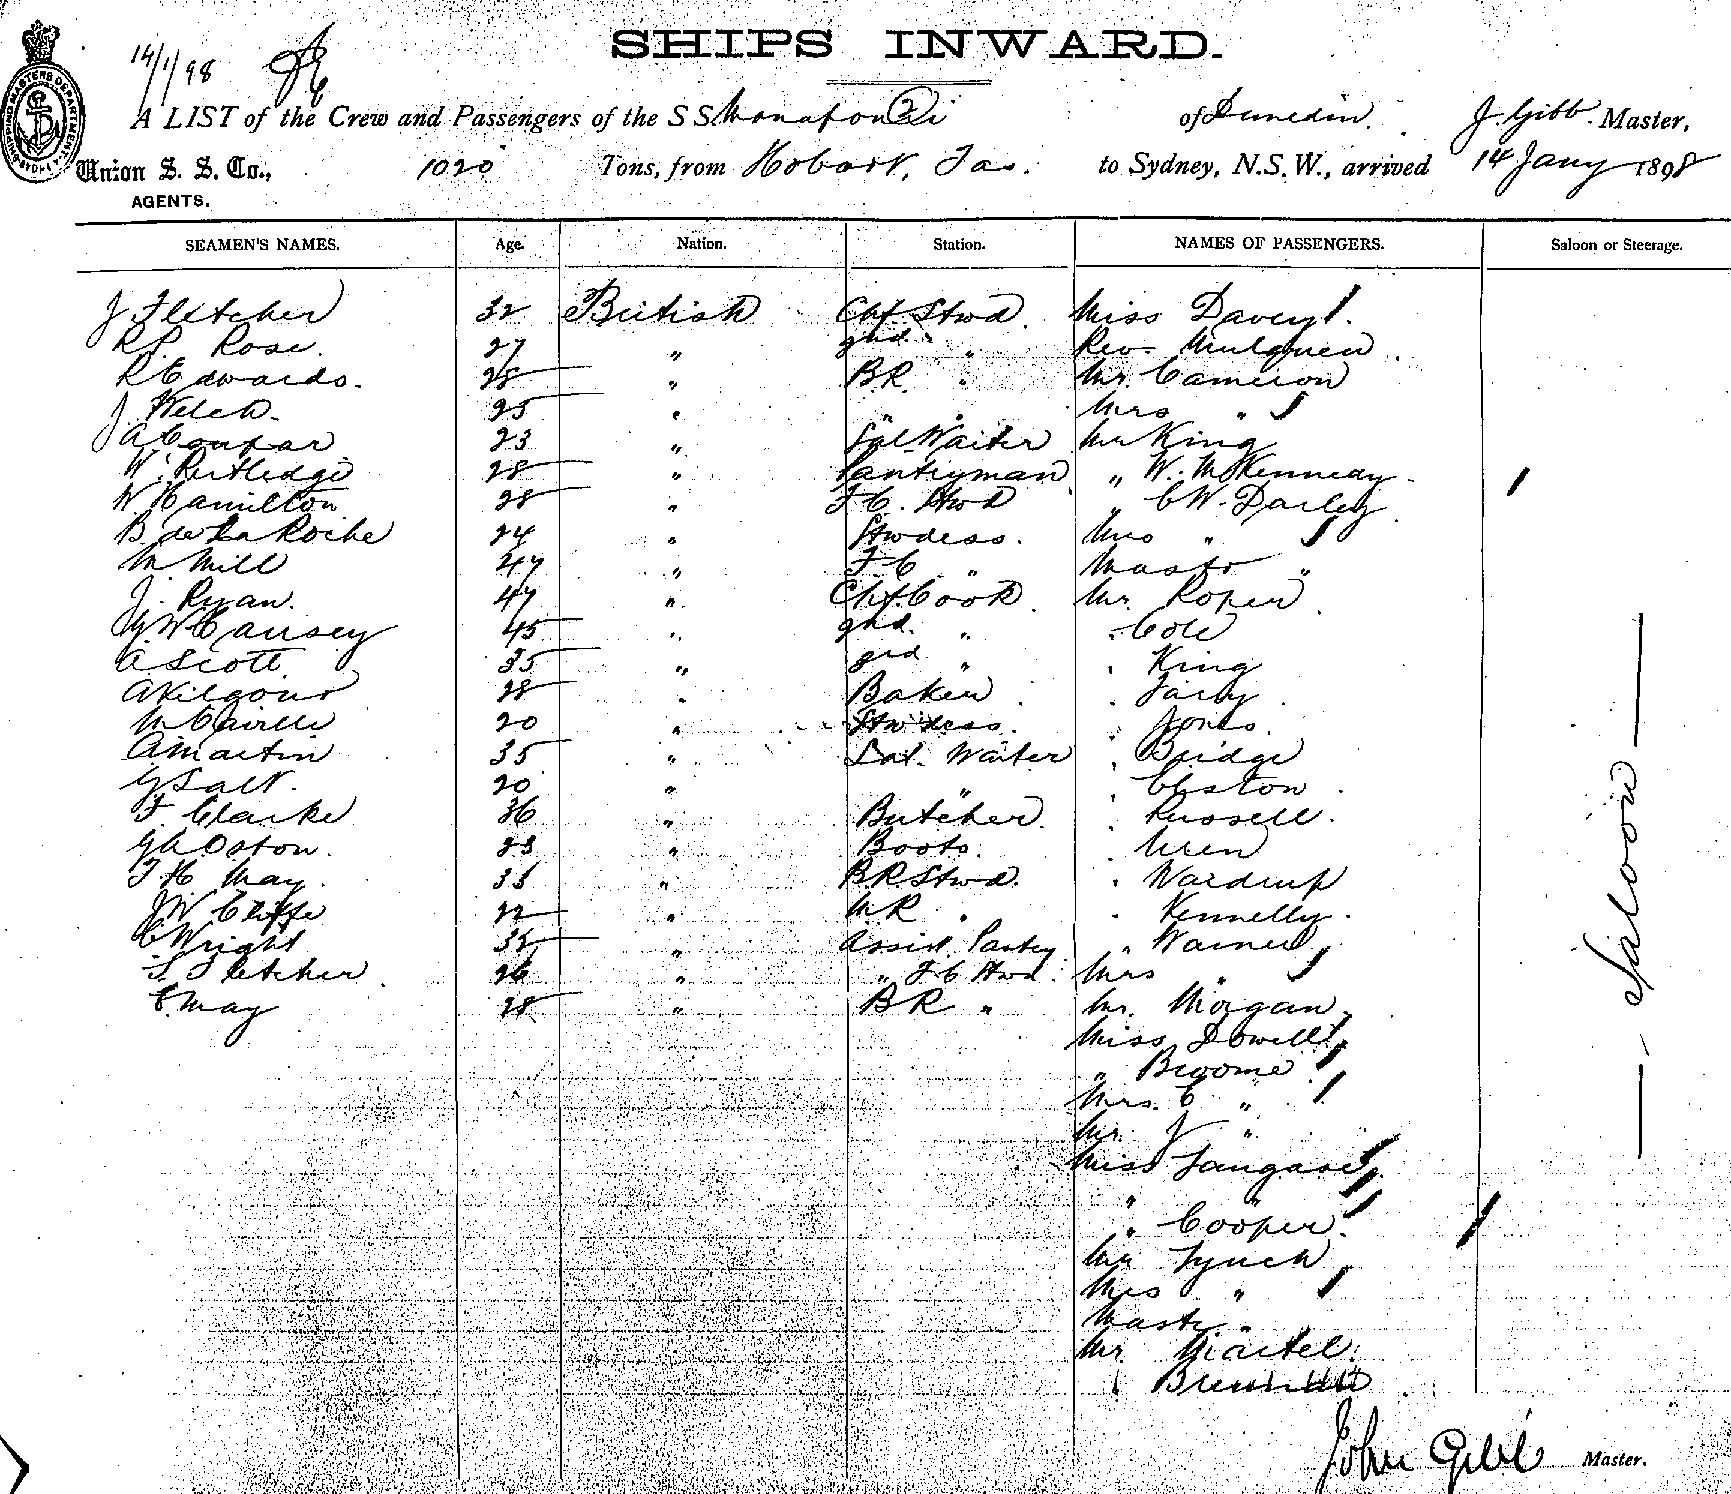 SHIPS INWARD.
14/1/98
A LIST of the Crew and Passengers of the SS Monapouri (2) of Dunedin. J. Gibb. Master,
Union S. S. Co., 1020 Tons, from Hobart, Tas. to Sydney, N.S.W., arrived 14 Jany 1898
AGENTS.
SEAMEN'S NAMES. Age. Nation. Station. NAMES OF PASSENGERS. Saloon or Steerage.
J Fletcher 32 British Chf. Stwd. Miss Davey
R P. Rose. 27 " 2nd " Rev.
R Edwards. 28 " BR. " Mr. Cameron
J. Welch. 25 " " " Mrs "
A Coupar 23 " Sal Waiter Mr King
W. Rutledge 28 " Pantryman " W. McKenneay
W. Hamilton 28 " F C. Stwd " C W. Darley
B de La Roche 24 " Stwdess. Mrs "
M Mill 47 " F C " Mastr "
J. Ryan. 47 " Chf. Cook. Mr. Roper
G. W Causey 45 " 2nd. " " Cole
A Scott. 35 " 3rd " " King
A Kilgour 28 " Baker "
20 " Stwdess. " Jones.
A Martin 35 " Sal. Waiter " Bridge
G Salt. 20 " " "
F Clarke 36 " Butcher. " Russell.
G A Oston. 23 " Boots. " Wren
T H May. 35 " B R. Stwd. " Wardrup
J W Cliffe 22 " M R " " Kennelly.
C Wright 32 " Assist. Pantry " Warner
S. Fletcher 26 " " F C Stwd. Mrs "
E. May 28 " B R " Mr. Morgan
Miss Dowell
" Broome
Mrs. C "
Mr. J "
Miss
" "
" Cooper
Mr Lynch
Mrs "
Mastr "
Mr. Martel.
"
— Saloon —
John Gibb Master.